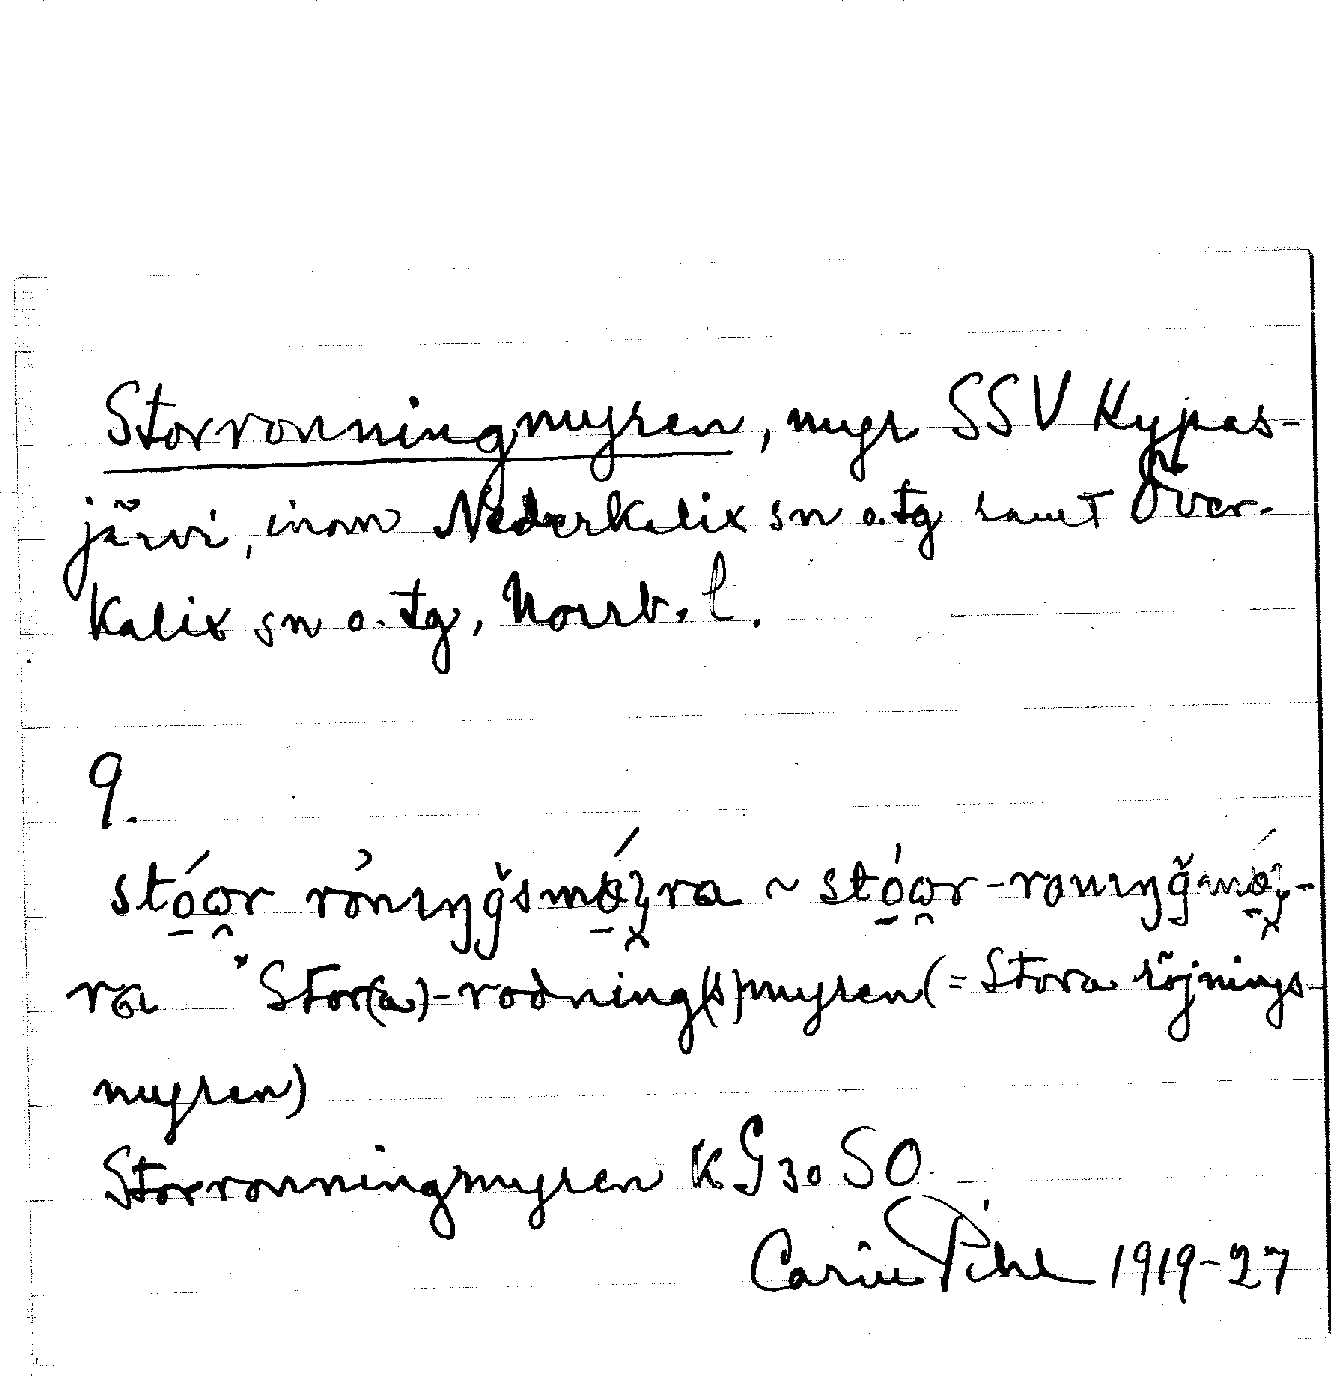 Storronningmyren, myr SSV Kypas-
järvi, inom Nederkalix sn o. tg samt Över-
kalix sn o. tg, Norrb. l.
9.
*Stor(a)-rodning(s)myren (= Stora röjnings-
myren)
Storronningmyren KG 30 SO
Carin Pihl 1919-27